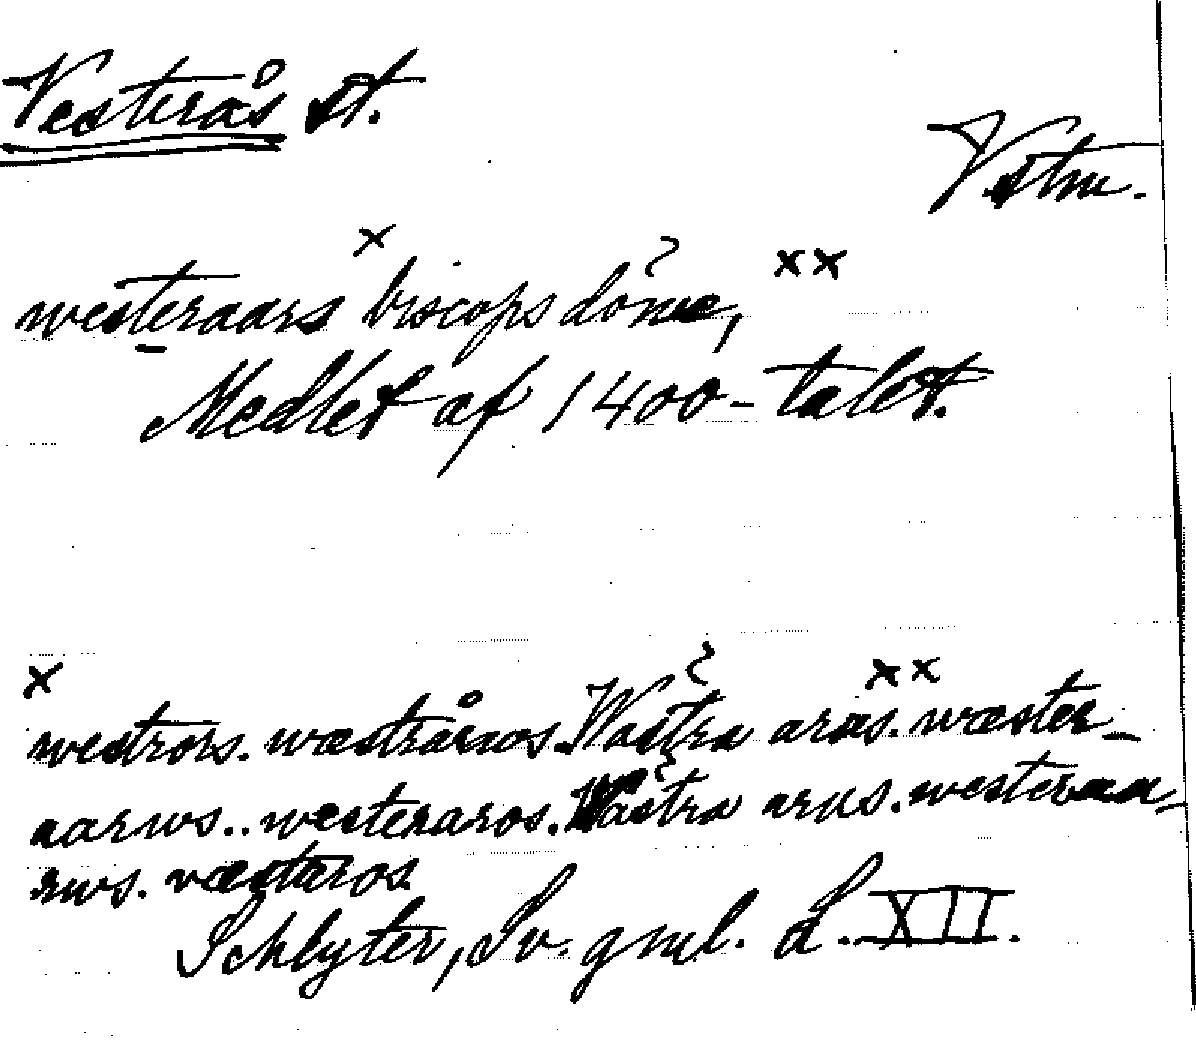 Vesterås st.
Vstm.
westeraars biscops döme,
Medlet af 1400-talet.
westrors. wæstråros. Wästra aras. wæster-
aarws.. westeraros. Wästra arus. westeraa-
rws. væsteros
Schlyter, Sv. gml. L. XII.